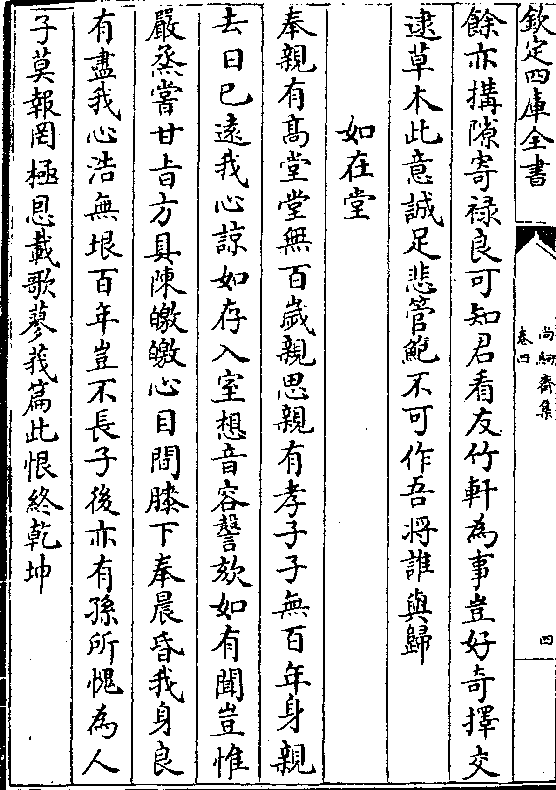 欽定四庫全書
尚絅齋集
卷四
四
餘亦搆隙寄禄良可知君看友竹軒為事豈好奇擇交
逮草木此意誠足悲管鮑不可作吾將誰與歸
如在堂
奉親有髙堂堂無百歲親思親有孝子子無百年身親
去日已逺我心諒如存入室想音容謦欬如有聞豈惟
嚴烝嘗甘㫖方具陳皦皦心目間膝下奉晨昏我身良
有盡我心浩無垠百年豈不長子後亦有孫所愧為人
子莫報罔極恩載歌蓼莪篇此恨終乾坤